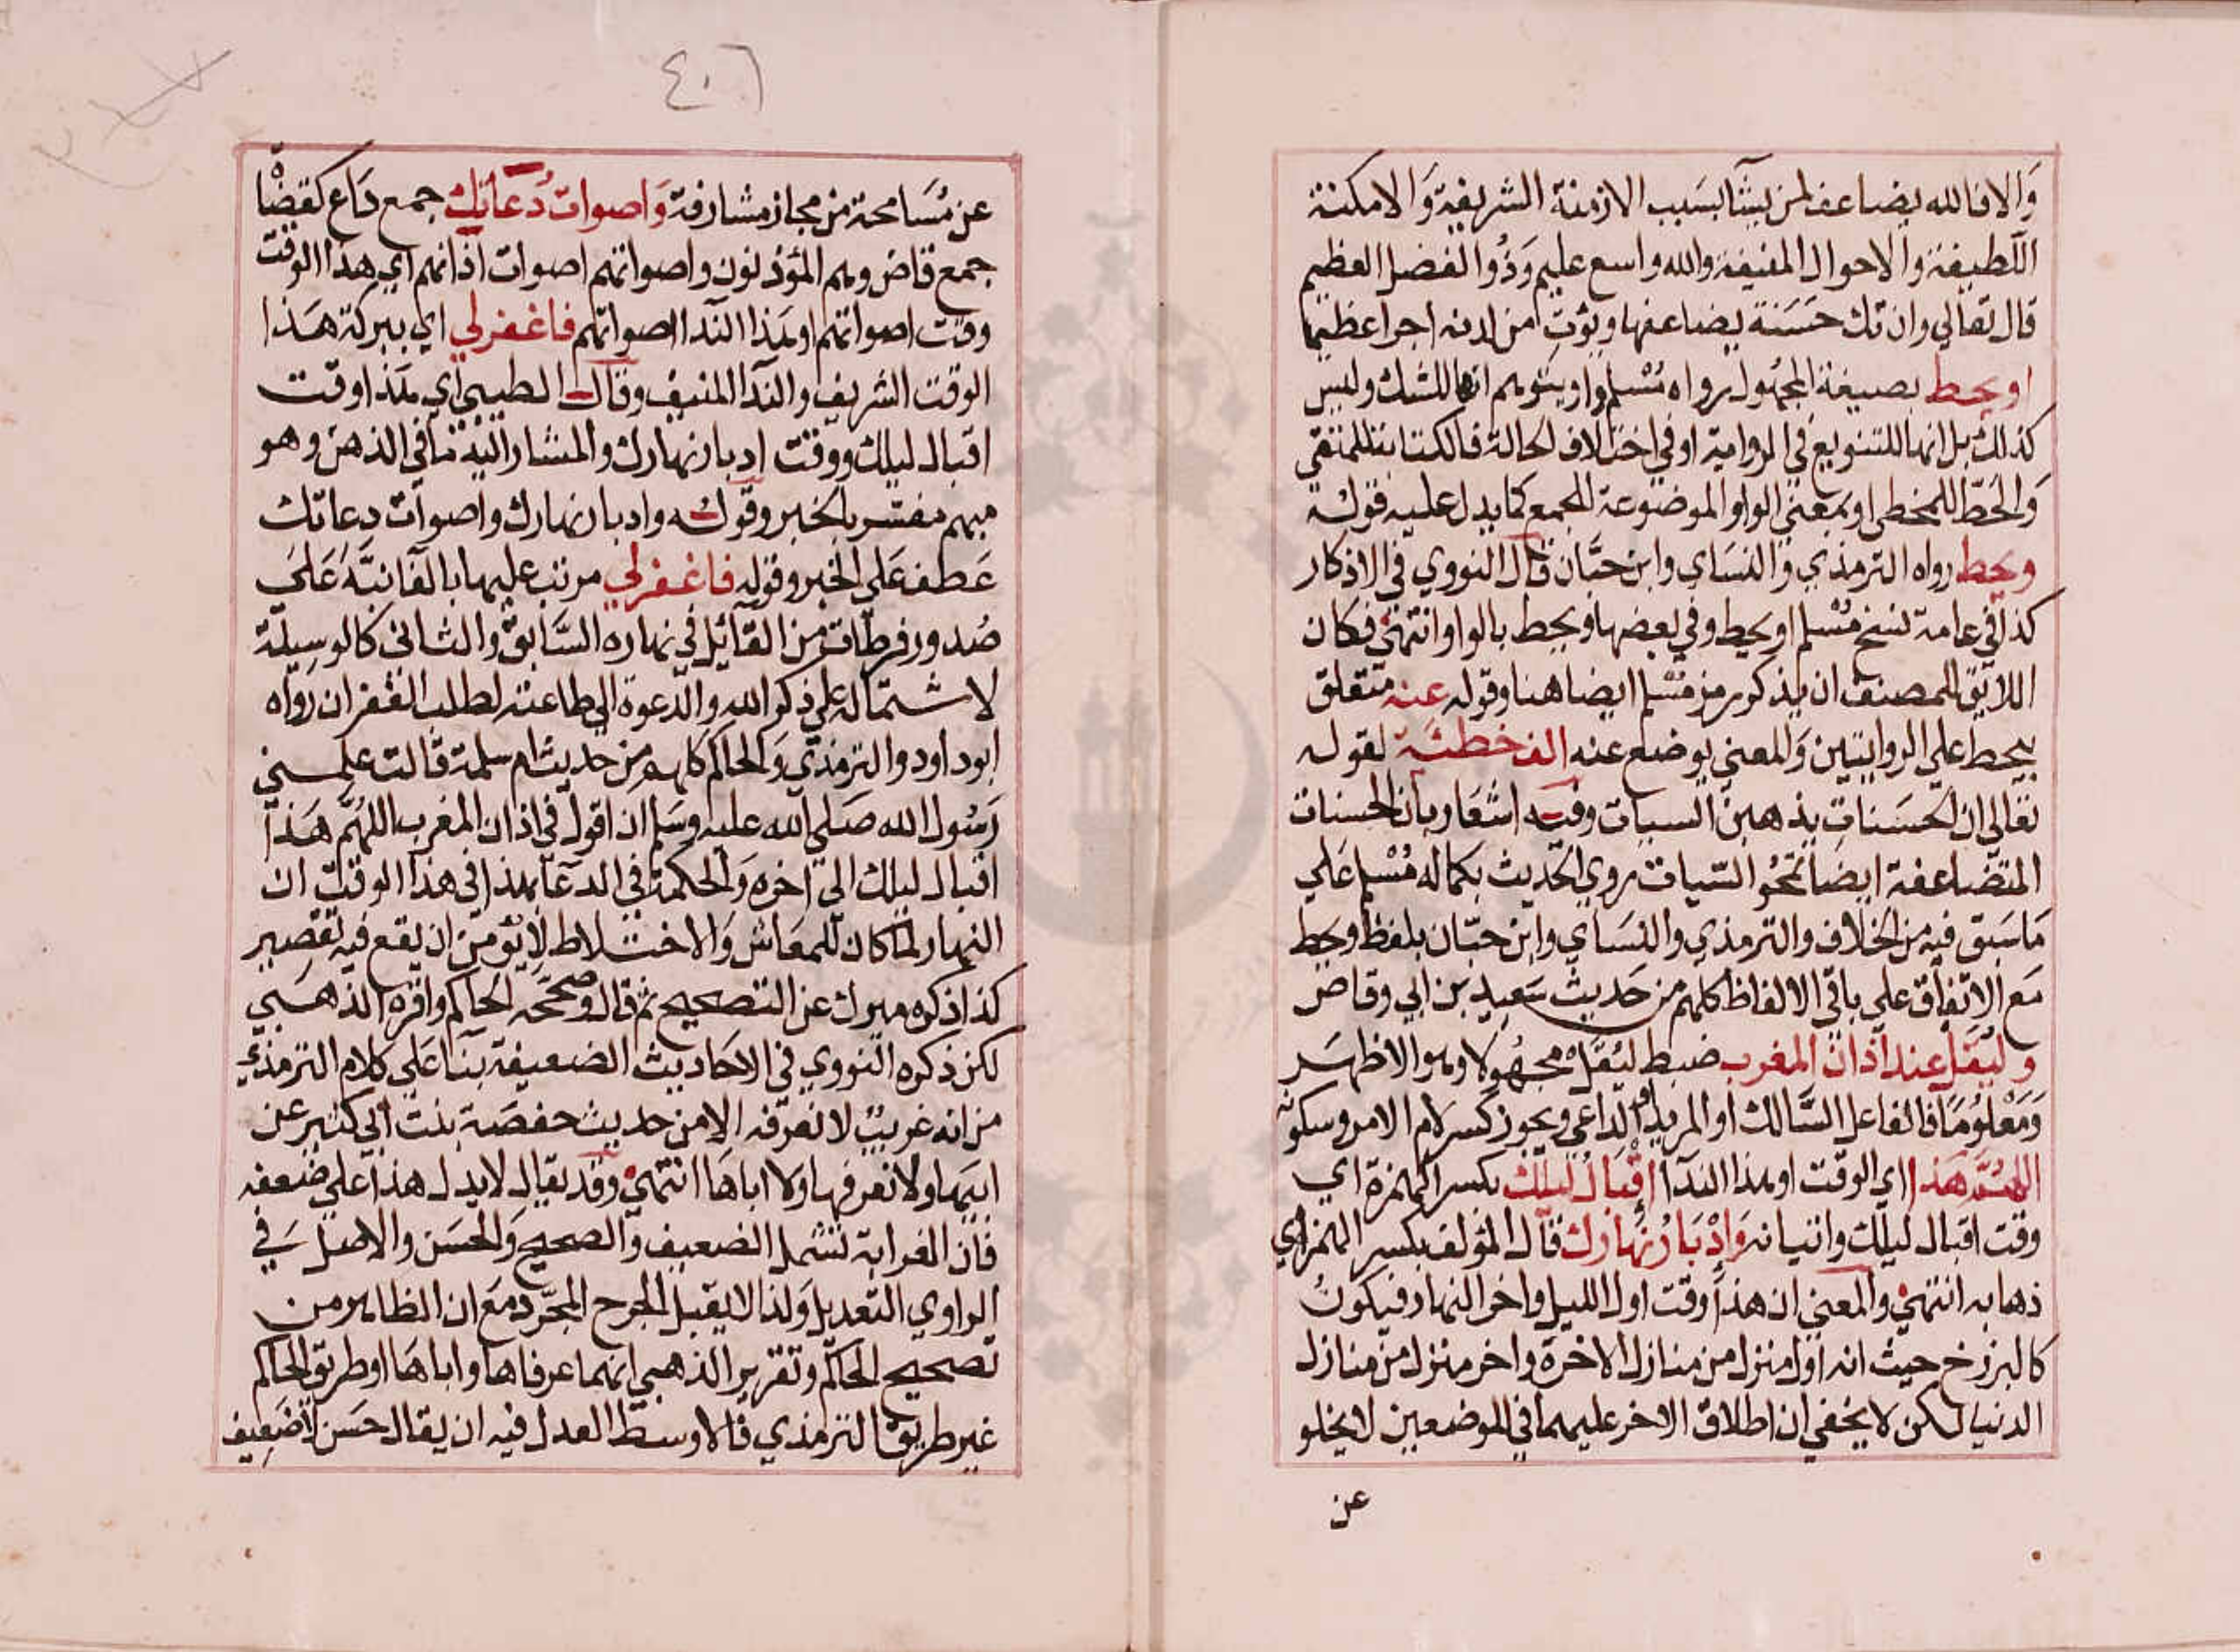 والا فالله يضاعف لمن يشآ بسبب الازمنة الشريفة والامكنة
اللطيفة والاحوال المنيفة والله واسع عليم وذوا الفضل العظيم
قال تعالي وان تك حسنة يضاعفها ويؤت من لدنه اجرا عظيما
او يحط بصيغة المجهول رواه مسلم واو يتوهم انها للشك وليس
كذلك بل انها للتنويع في الرواية او في اختلاف الحالة فالكتابة للمتقي
والحط للمخطي او بمعني الواو الموضوعة للجمع كما يدل عليه قوله
ويحط رواه الترمذي والنساي وابن حبان قال النووي في الاذكار
كذا في عامة نسخ مسلم او يحط وفي بعضها ويحط بالواو انتهي فكان
اللايق للمصنف ان يذكر رمز مسلم ايضا هنا وقوله عنه متعلق
بيحط علي الروايتين والمعني يوضع عنه الف خطئة لقوله
تعالي ان الحسنات يذهبن السيات وفيه اشعار بان الحسنات
المتضاعفة ايضا تمحو السيات روي الحديث بكماله مسلم علي
ما سبق فيه من الخلاف والترمذي والنساي وابن حبان بلفظ وحط
مع الاتفاق علي باقي الالفاظ كلهم من حديث سعيد بن ابي وقاص
وليقل عند اذان المغرب ضبط ليقل مجهولا وهو الاظهر
ومعلوما فالفاعل السالك او المريد او الداعي ويجوز كسر لام الامر وسكونه
اللهم هذا اي الوقت او هذا الندآ اقبال ليلك بكسر الهمزة اي
وقت اقبال ليلك واتيانه وادبار نهارك قال المؤلف بكسر الهمزة اي
ذهابه انتهي والمعني ان هذا وقت اول الليل واخر النهار فيكون
كالبرزخ حيث انه اول منزل من منازل الاخرة واخر منزل من منازل
الدنيا لكن لا يخفي ان اطلاق الاخر عليهما في الموضعين لا يخلو
عن
٤٠٦
عن مسامحة من مجاز مشارفة واصوات دعاتك جمع داع كقضا
جمع قاض وهم المؤذنون واصواتهم اصوات اذانهم اي هذا الوقت
وقت اصواتهم او هذا الندآ اصواتهم فاغفر لي اي ببركة هذا
الوقت الشريف والندآ المنيف وقال الطيبي اي هذا وقت
اقبال ليلك ووقت ادبار نهارك والمشار اليه ما في الذهن وهو
مبهم مفسر بالخبر وقوله وادبار نهارك واصوات دعاتك
عطف علي الخبر وقوله فاغفر لي مرتب عليها بالفا نبه علي
صدور فرطات من القائل في نهاره السابق والثاني كالوسيلة
لاشتماله علي ذكر الله والدعوة الي طاعته لطلب الغفران رواه
ابو داود والترمذي والحاكم كلهم من حديث ام سلمة قالت علمني
رسول الله صلي الله عليه وسلم ان اقول في اذان المغرب اللهم هذا
اقبال ليلك الي اخره والحكمة في الدعآ بهذا في هذا الوقت ان
النهار لما كان للمعاش والاختلاط لا يؤمن ان يقع فيه تقصير
كذا ذكره ميرك عن التصحيح ثم قال وصححه الحاكم واقره الذهبي
لكن ذكره النووي في الاحاديث الضعيفة بنا علي كلام الترمذي
من انه غريب لا نعرفه الا من حديث حفصة بنت ابي كثير عن
ابيها ولا نعرفها ولا اباها انتهي وقد يقال لا يدل هذا علي ضعفه
فان الغرابة تشمل الضعيف والصحيح والحسن والاصل في
الراوي التعديل ولذا لا يقبل الجرح المجرد مع ان الظاهر من
تصحيح الحاكم وتقرير الذهبي انهما عرفاها واباها او طريق الحاكم
غير طريق الترمذي فالاوسط العدل فيه ان يقال حسن لا ضعيف